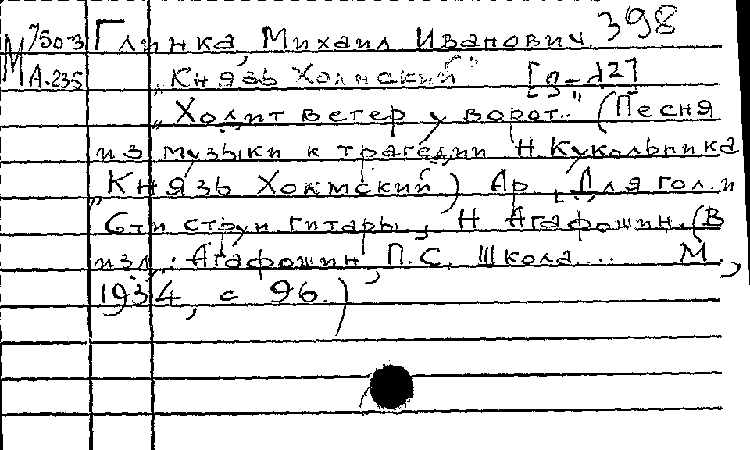 М 750-3 Глинка, Михаил Иванович 398
А.235 „Князь Холмский"
„Ходит ветер у ворот.." (Песня
из музыки к трагедии Н. Кукольника
„Князь Холмский") Ар. Для гол. и
6ти струн. гитары, Н Агафошин. (В
изд.: Агафошин, П.С. Школа.... М,
1934, с 96.)